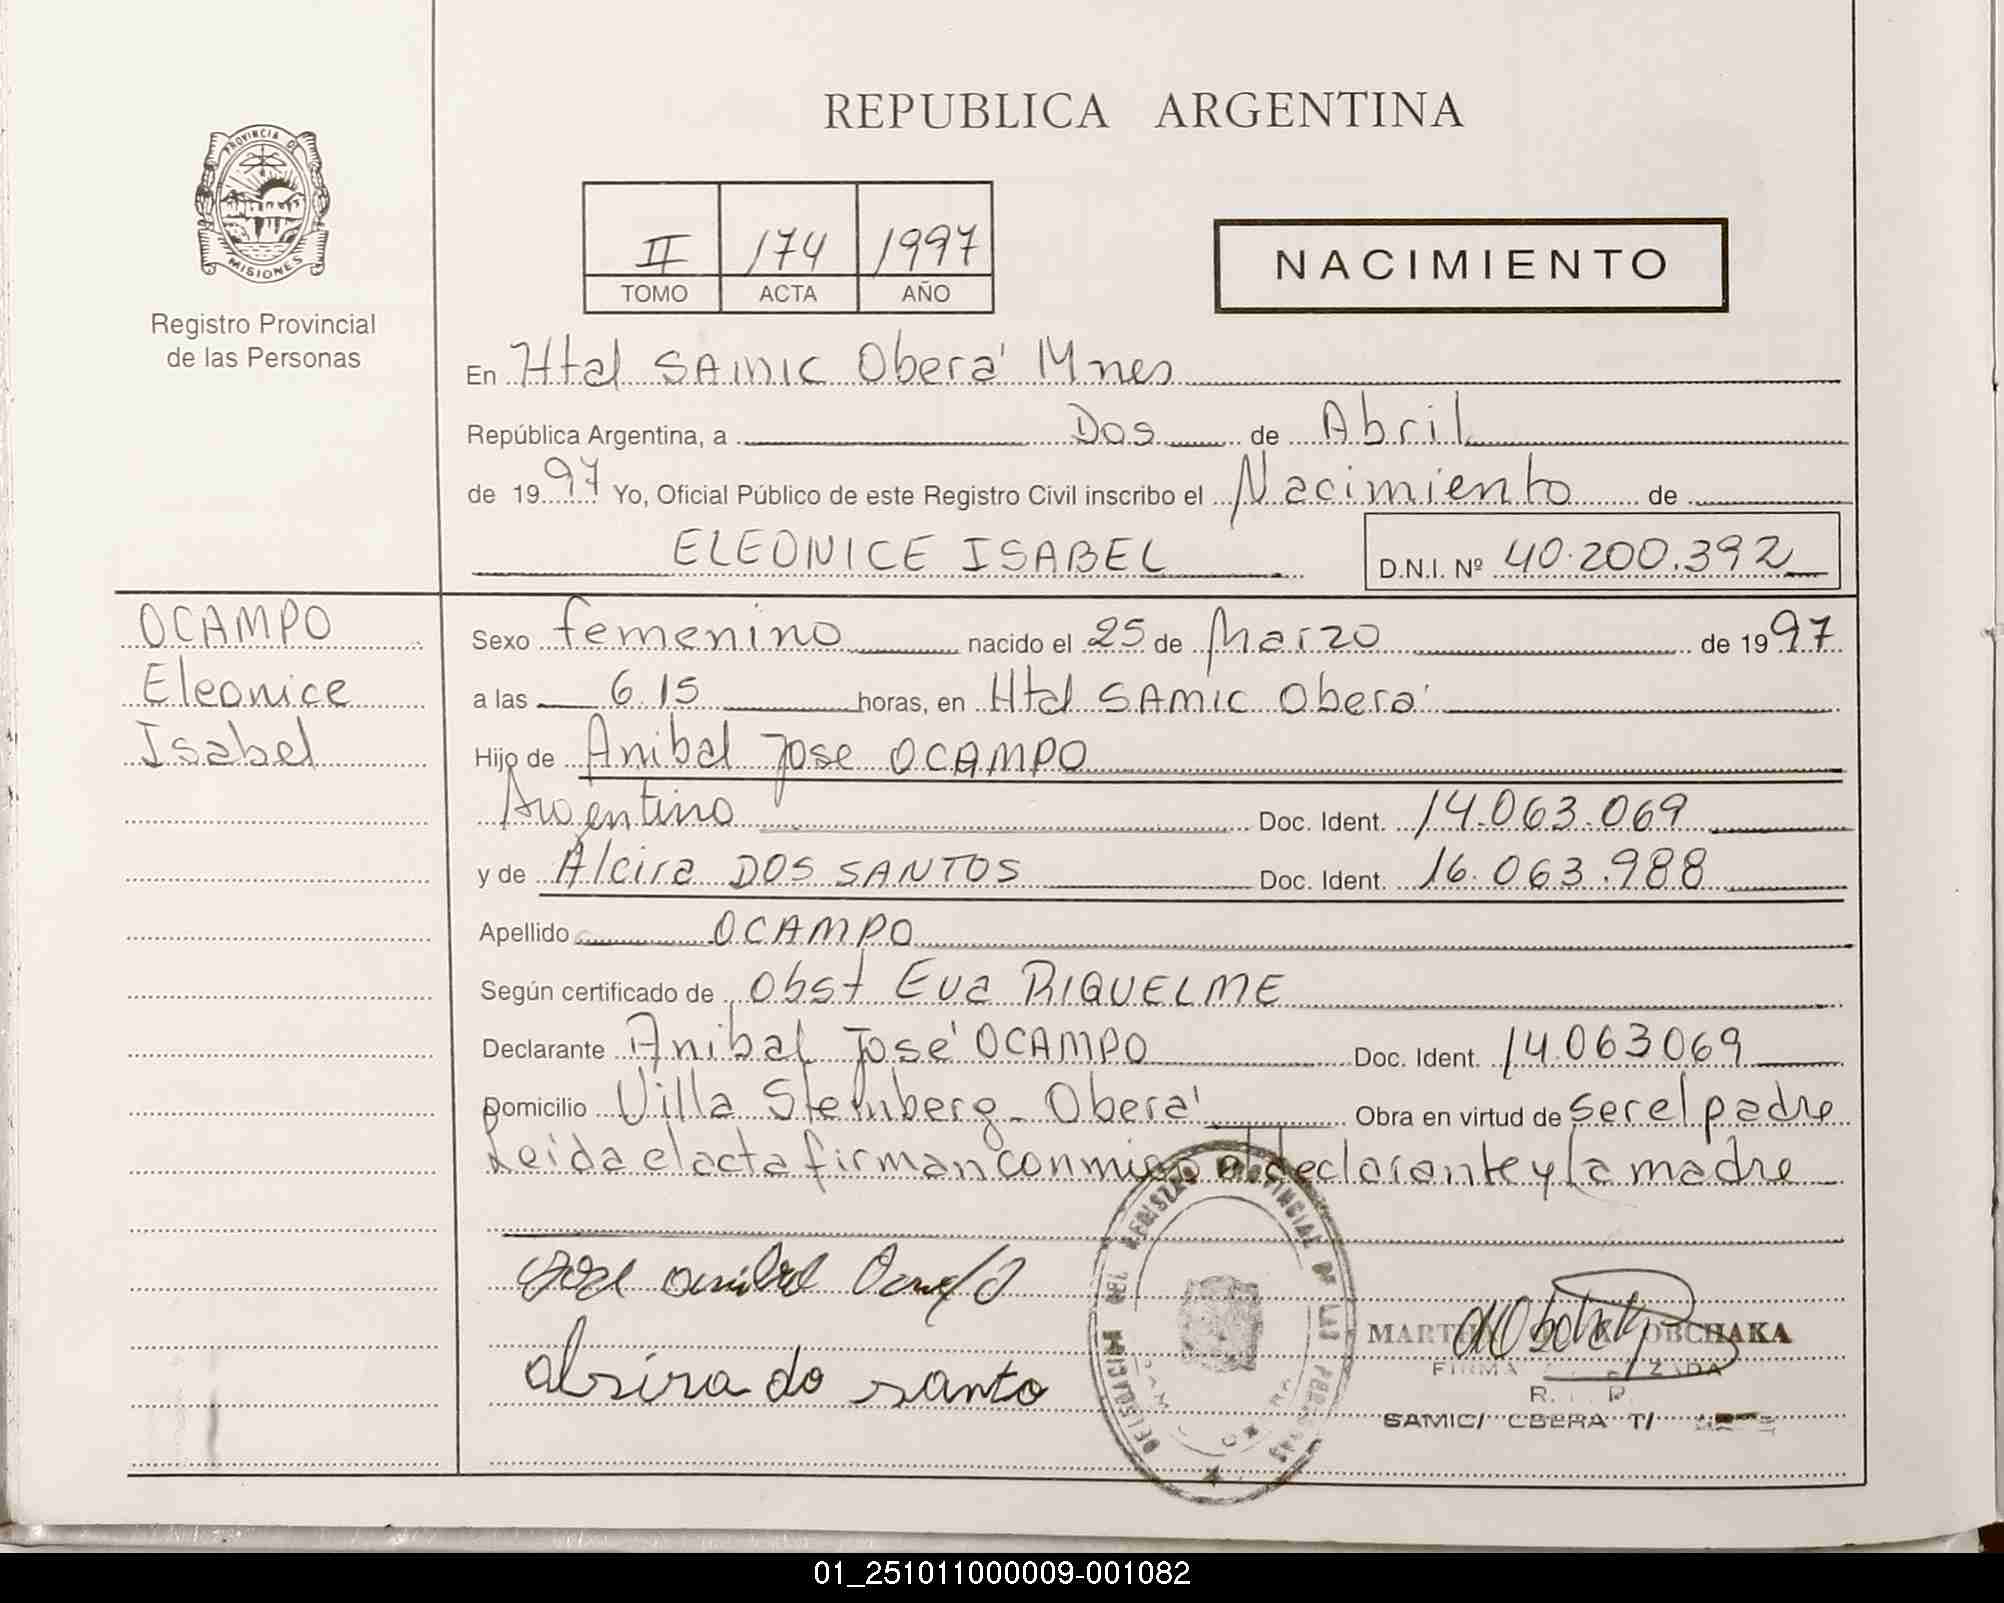 REPUBLICA ARGENTINA
PROVINCIA DE
MISIONES
Registro Provincial
de las Personas
II 174 1997
TOMO ACTA AÑO
NACIMIENTO
En Htal SAMIC Oberá Mnes
República Argentina, a Dos de Abril
de 1997 Yo, Oficial Público de este Registro Civil inscribo el Nacimiento de
ELEONICE ISABEL D.N.I. Nº 40.200.392
OCAMPO
Eleonice
Isabel
Sexo femenino nacido el 25 de Marzo de 1997
a las 6.15 horas, en Htal SAMIC Oberá
Hijo de Anibal Jose OCAMPO
Argentino Doc. Ident. 14.063.069
y de Alcira DOS SANTOS Doc. Ident. 16.063.988
Apellido OCAMPO
Según certificado de Obst Eva RIQUELME
Declarante Anibal José OCAMPO Doc. Ident. 14.063069
Domicilio Villa Stemberg - Oberá Obra en virtud de ser el padre
Leida el acta firman conmigo el declarante y la madre
alsira do santo
REGISTRO PROVINCIAL DE LAS PERSONAS
DELEGACION
MARTHA OBCHAKA
FIRMA
SAMIC/ OBERA T/
01_251011000009-001082